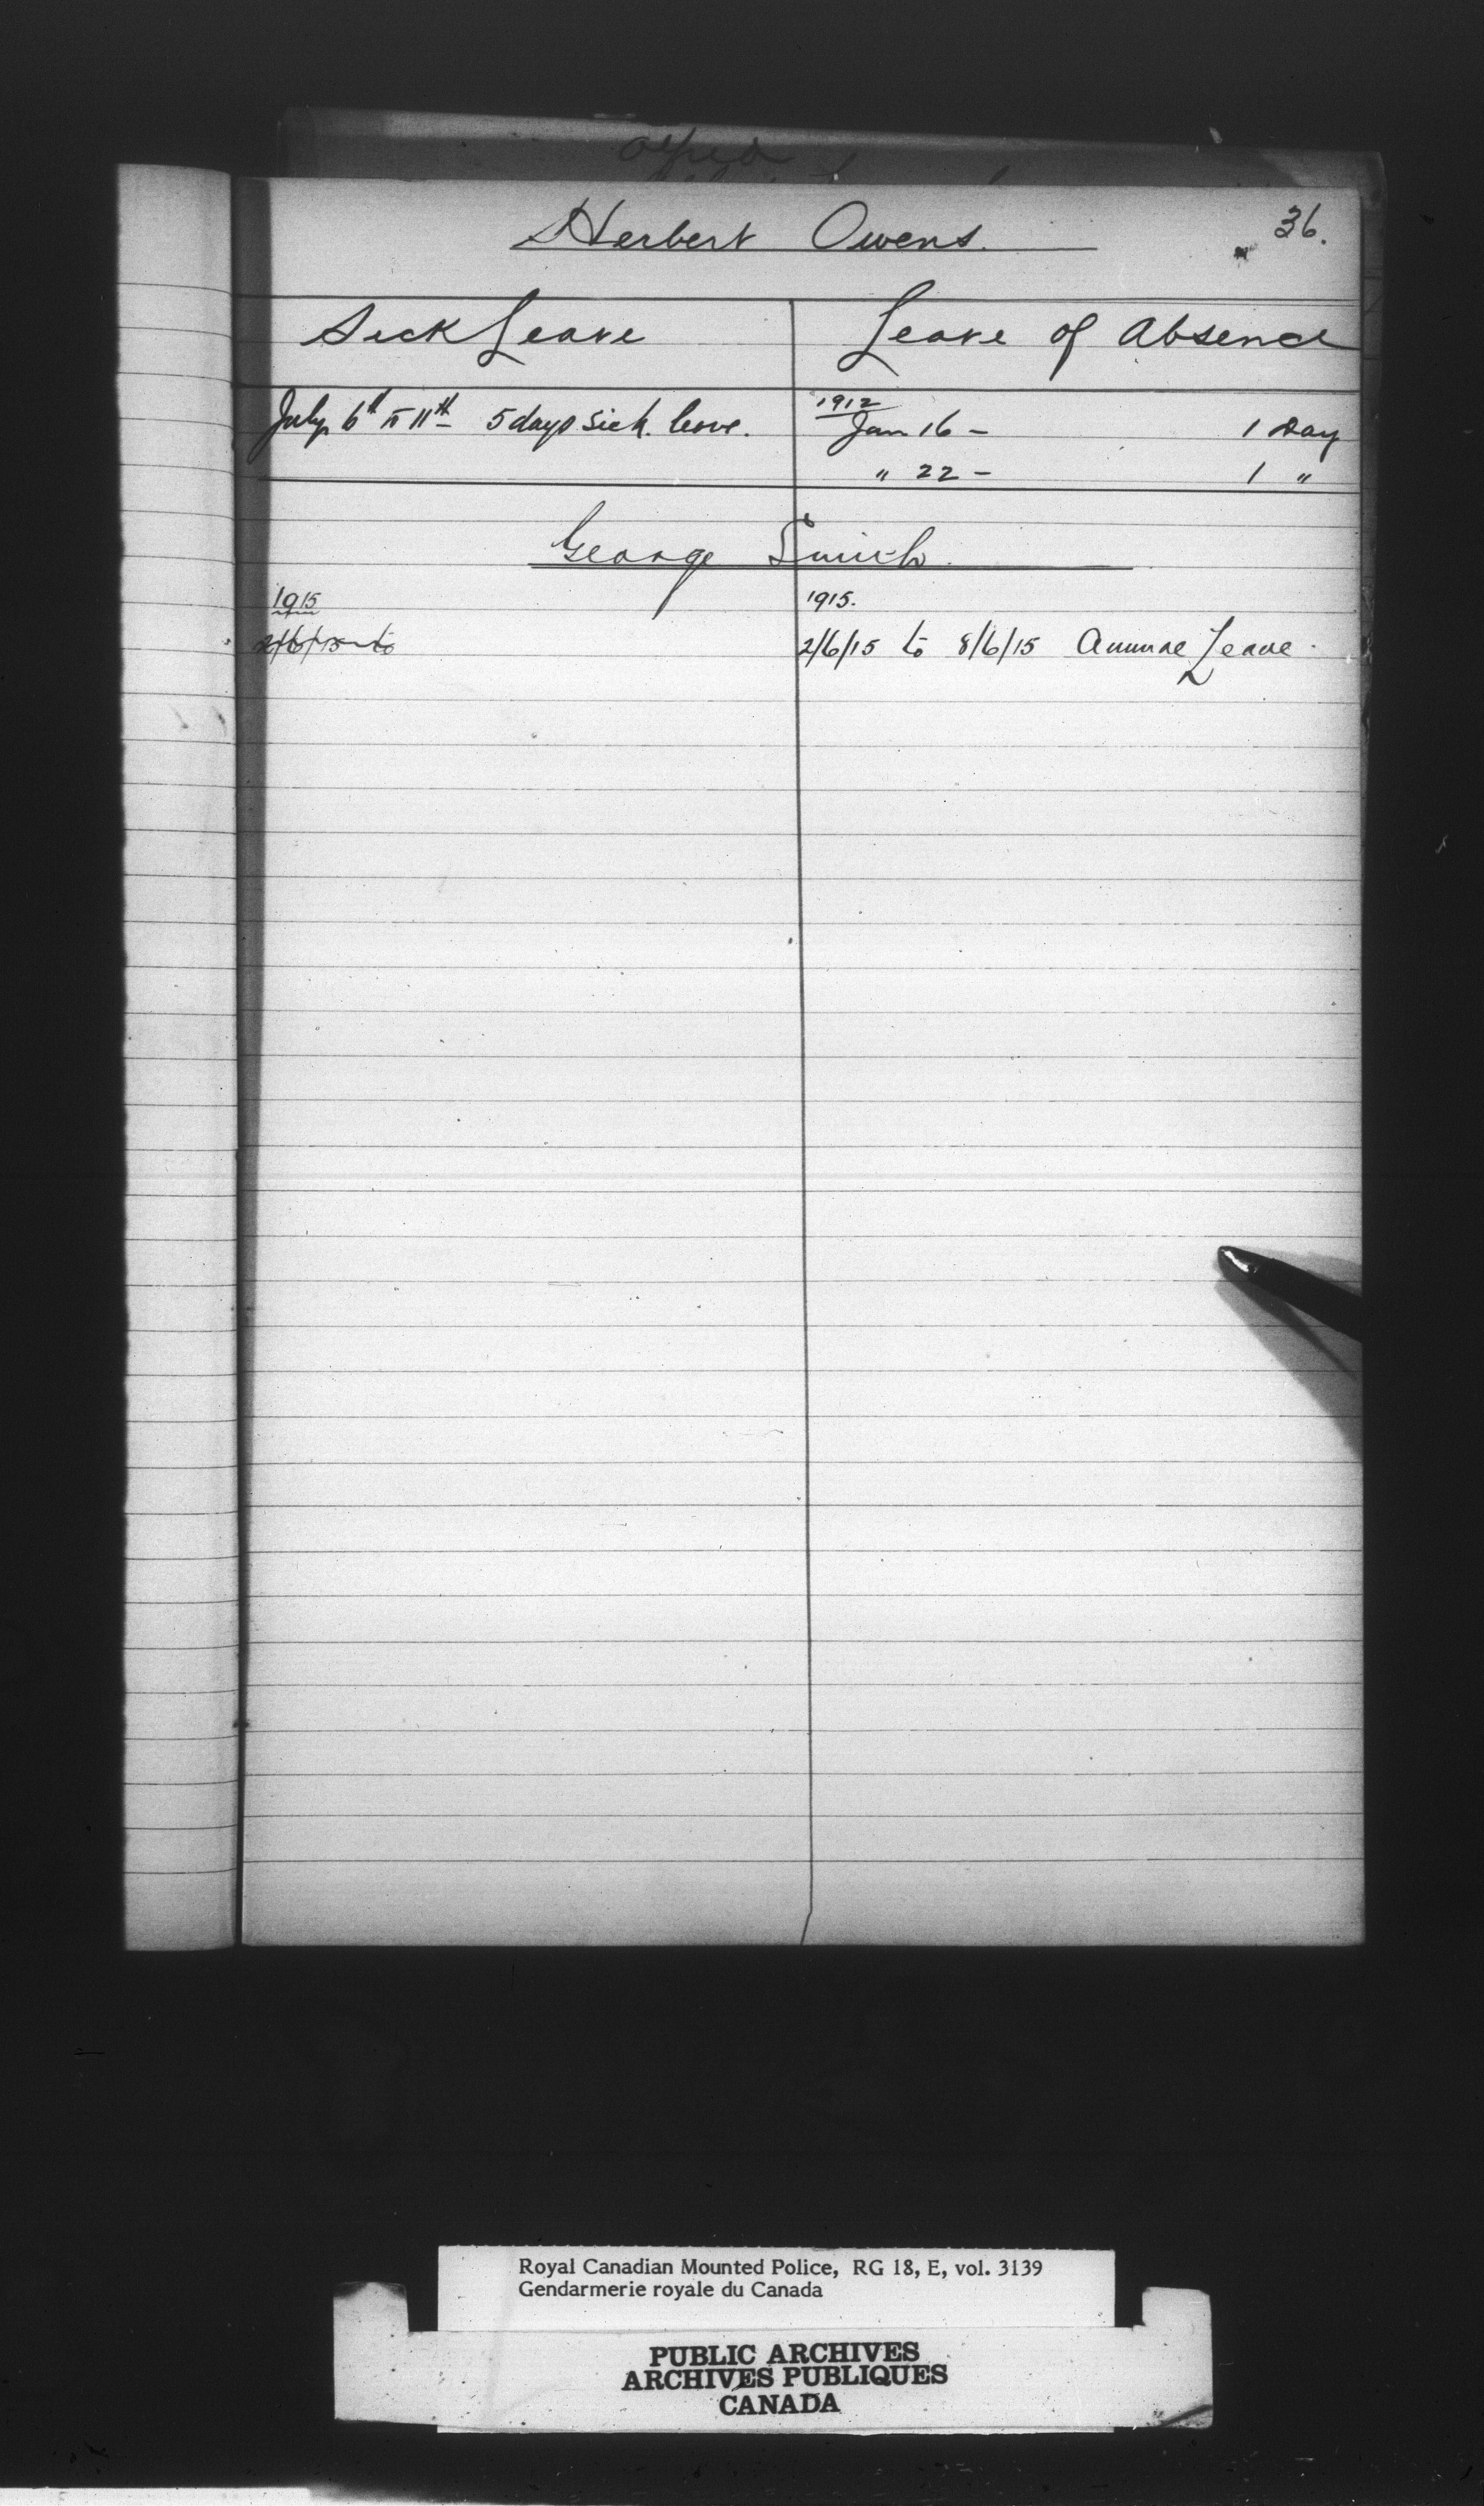 Herbert Owens. 36.
Sick Leave Leave of Absence
July 6th to 11th 5 days sick leave. 1912
Jan 16 - 1 Day
" 22 - 1 "
George Smith.
1915 1915.
2/6/15 to 2/6/15 to 8/6/15 Annual Leave.
Royal Canadian Mounted Police, RG 18, E, vol. 3139
Gendarmerie royale du Canada
PUBLIC ARCHIVES
ARCHIVES PUBLIQUES
CANADA